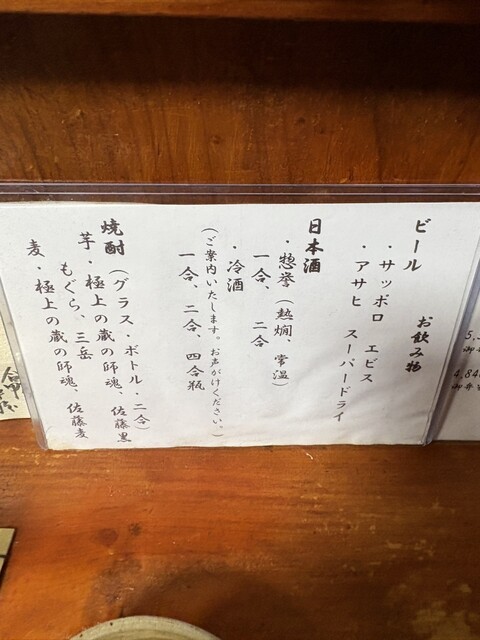 お飲み物
ビール
・サッポロ エビス
・アサヒ スーパードライ
日本酒
・惣誉（熱燗、常温）
一合、二合
・冷酒
（ご案内いたします。お声がけください。）
一合、二合、四合瓶
焼酎（グラス、ボトル・二合）
芋・極上の蔵の師魂、佐藤黒
もぐら、三岳
麦・極上の蔵の師魂、佐藤麦
4,84